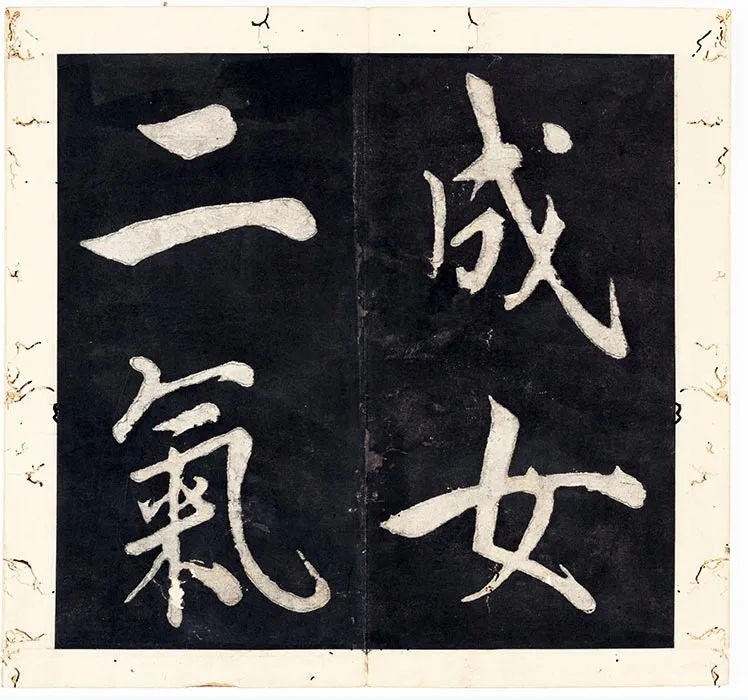 成女
二氣